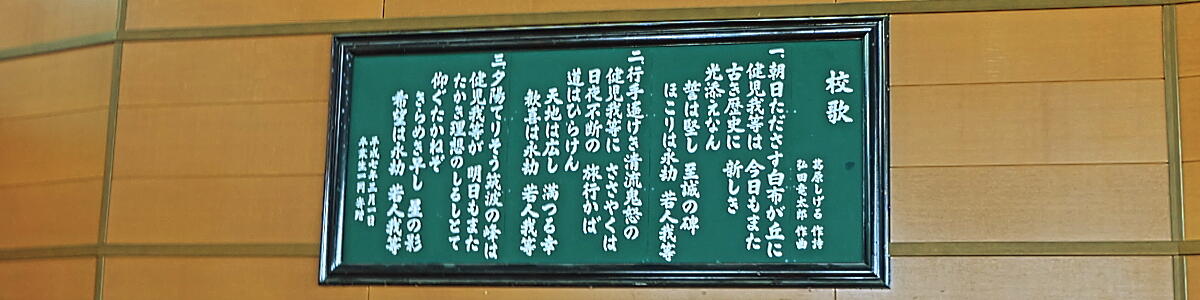 校歌
葛原しげる 作詩
弘田竜太郎 作曲
一、朝日たださす白布が丘に
健児我等は 今日もまた
古き歴史に 新しき
光添えなん
誓は堅し 至誠の碑
ほこりは永劫 若人我等
二、行手遥けき清流鬼怒の
健児我等に ささやくは
日夜不断の 旅行かば
道はひらけん
天地は広し 満つる幸
歓喜は永劫 若人我等
三、夕陽てりそう筑波の峰は
健児我等が 明日もまた
たかき理想のしるしとて
仰ぐたかねぞ
きらめき早し 星の影
希望は永劫 若人我等
平成七年三月一日
卒業生一同 寄贈